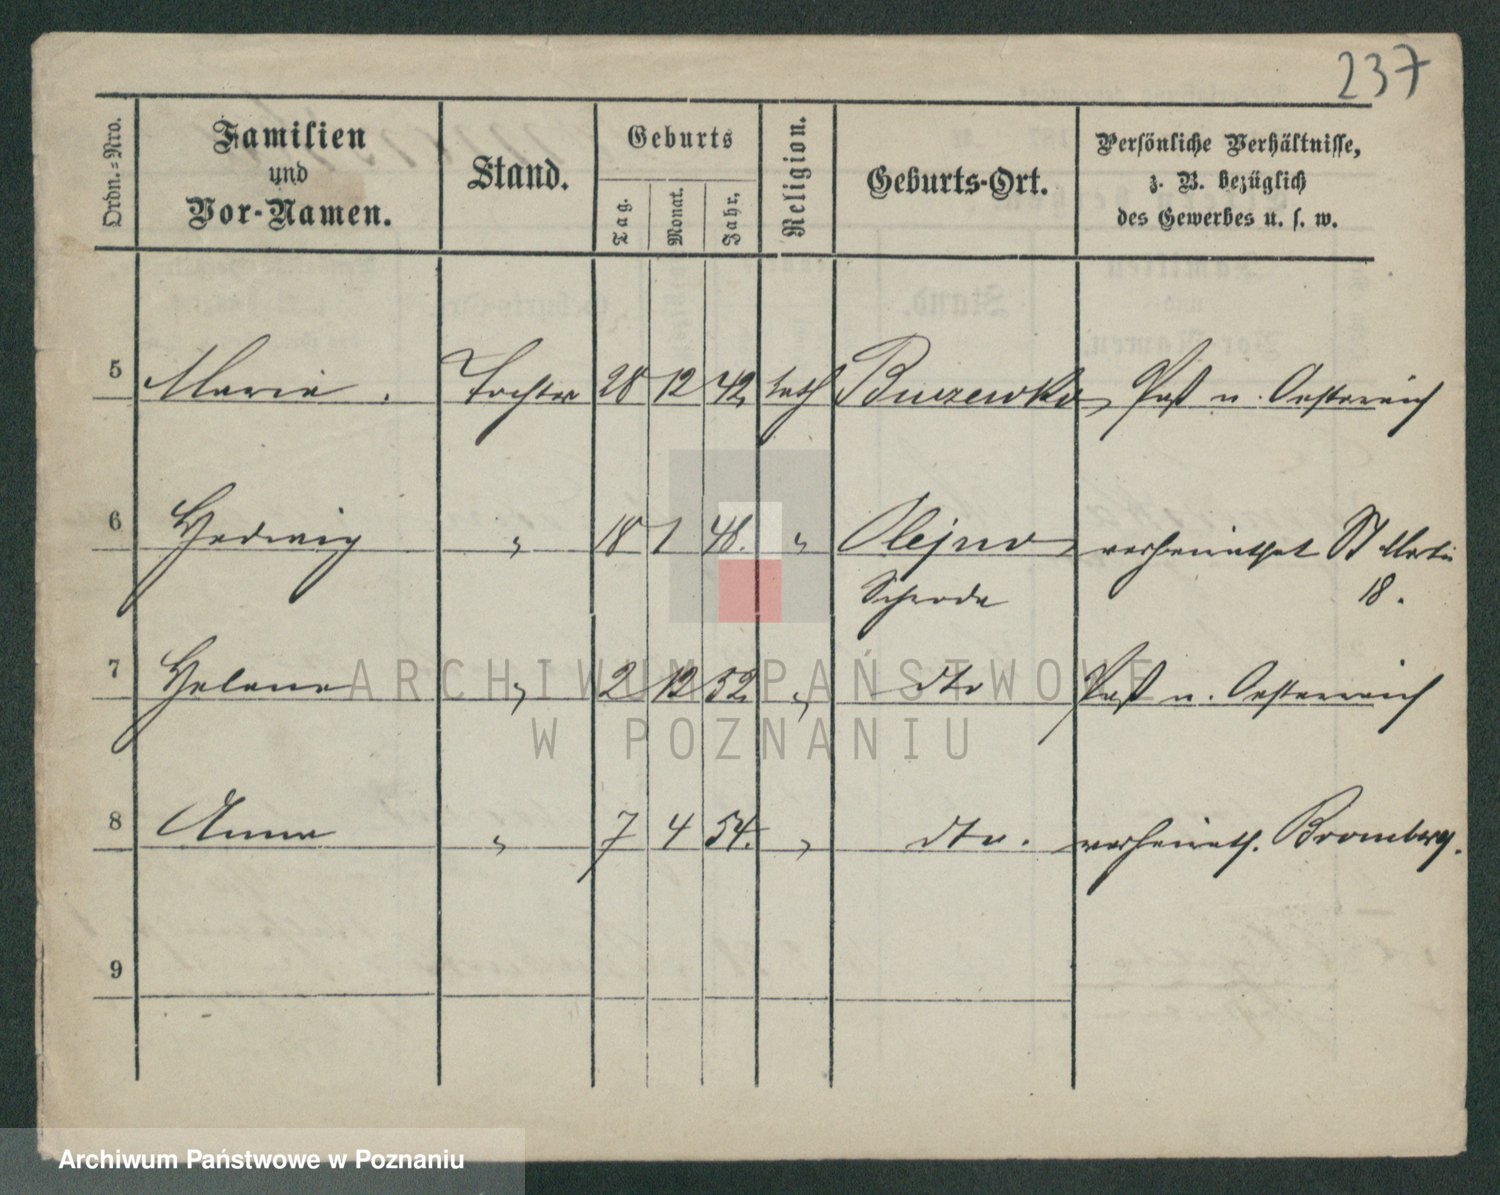 237
Ordn.=Nro.
Familien
und
Vor-Namen.
Stand.
Geburts
Tag.
Monat.
Jahr.
Religion.
Geburts-Ort.
Persönliche Verhältnisse,
z. B. bezüglich
des Gewerbes u. s. w.
5 Marie. Tochter 28 12 42 kath Buszewko, Paß n. Oesterreich
6 Hedwig " 18 1 48. " Olejno verheirathet St Martin
Schroda 18.
7 Helene " 2 12 52. " dto Paß n. Oesterreich
8 Anna " 7 4 54. " dto. verheirath. Bromberg.
9
ARCHIWUM PAŃSTWOWE
W POZNANIU
Archiwum Państwowe w Poznaniu